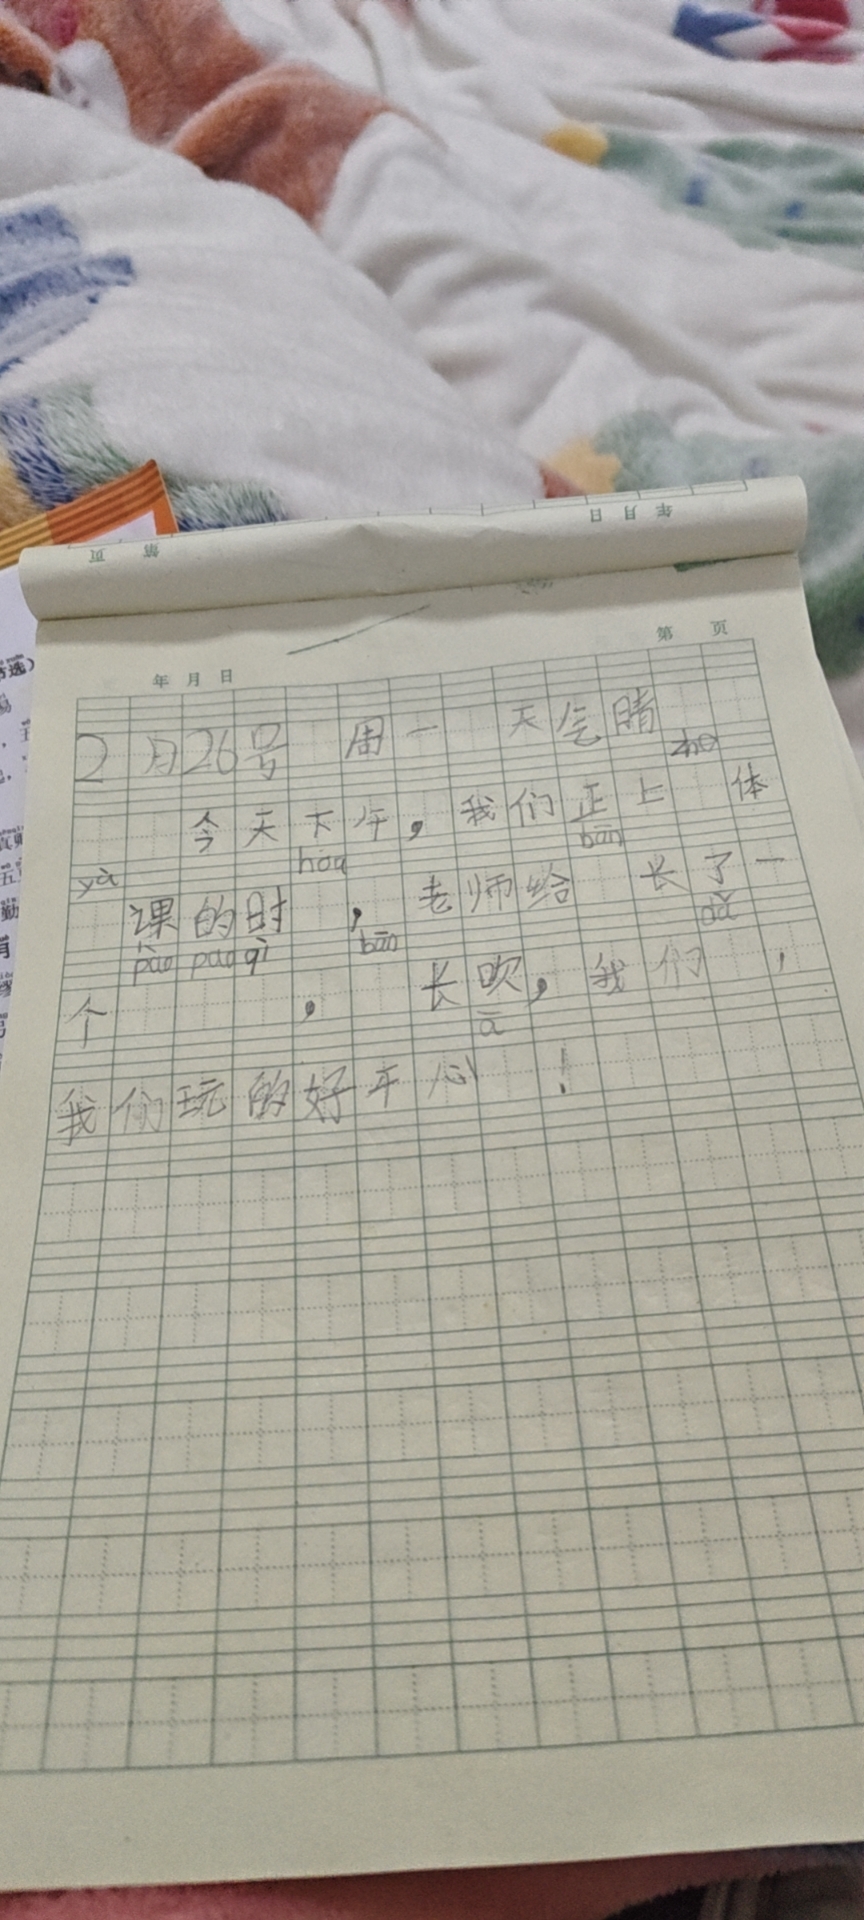 年 月 日
第 页
年 月 日
第 页
2月26号 周一 天气晴
今天下午，我们正上 体
yù hòu bān
课的时 ，老师给 长了一
pào pao qì bān
个 ， 长吹，我们 ，
ā
我们玩的好开心 ！